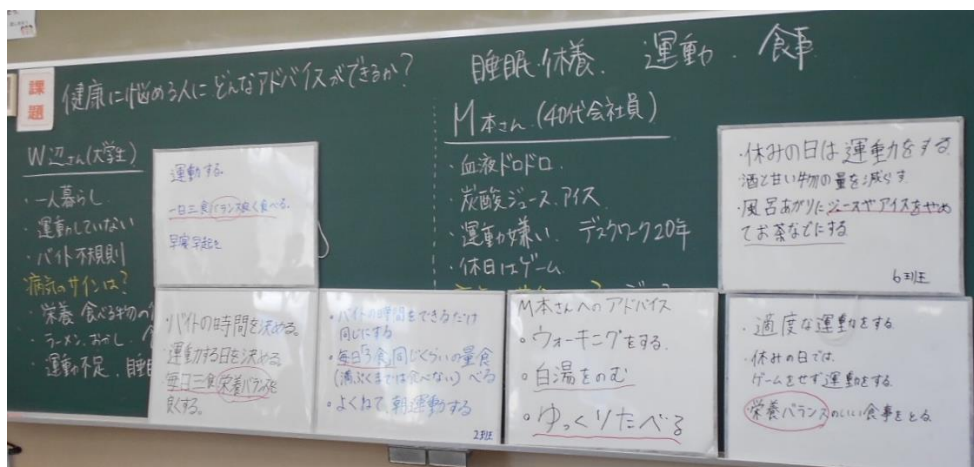 課題
健康に悩める人にどんなアドバイスができるか？
睡眠・休養．運動．食事
W辺さん(大学生)
・一人暮らし
・運動していない
・バイト不規則
病気のサインは？
・栄養 食べる物の
・ラーメン．おかし．
・運動不足．睡眠
運動する
一日三食バランス良く食べる
早寝早起き
・バイトの時間を決める。
運動する日を決める。
毎日三食栄養バランスを
良くする。
・バイトの時間をできるだけ
同じにする
・毎日3食同じくらいの量食
(満ぷくまでは食べない) べる
・よくねて、朝運動する
2班
M本さん(40代会社員)
・血液ドロドロ
・炭酸ジュース．アイス
・運動嫌い デスクワーク20年
・休日はゲーム
M本さんへのアドバイス
・ウォーキングをする.
・白湯をのむ
・ゆっくりたべる
・休みの日は運動をする
酒と甘い物の量を減らす
・風呂あがりにジュースやアイスをやめ
てお茶などにする
6班
・適度な運動をする.
・休みの日では.
ゲームをせず運動をする.
栄養バランスのいい食事をとる